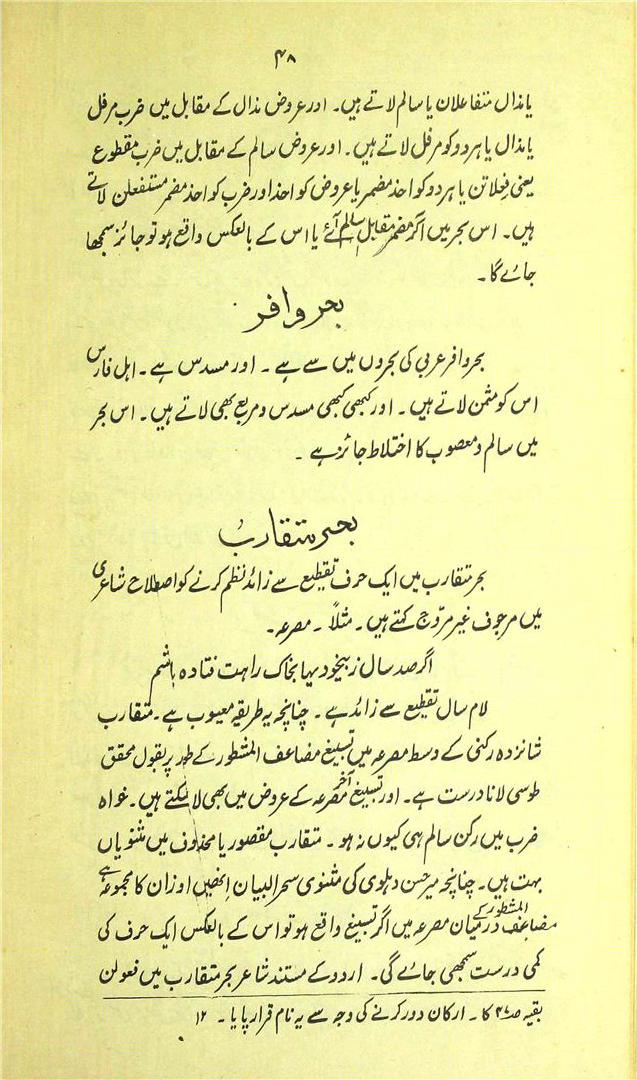 ۴۸
یا مذال متفاعلان یا سالم لاتے ہیں۔ اور عروض مذال کے مقابل میں ضرب مرفل
یا مذال یا ہر دو کو مرفل لاتے ہیں۔ اور عروض سالم کے مقابل میں ضرب مقطوع
یعنی فعلاتن یا ہر دو کو احذ مضمر یا عروض کو احذ اور ضرب کو احذ مضمر مستفعلن لاتے
ہیں۔ اس بحر میں اگر مضمر مقابل سالم آئے یا اس کے بالعکس واقع ہو تو جائز سمجھا
جائے گا۔
بحر وافر
بحر وافر عربی کی بحروں میں سے ہے ۔ اور مسدس ہے ۔ اہل فارس
اس کو مثمن لاتے ہیں ۔ اور کبھی کبھی مسدس و مربع بھی لاتے ہیں ۔ اس بحر
میں سالم و معصوب کا اختلاط جائز ہے ۔
بحر متقارب
بحر متقارب میں ایک حرف تقطیع سے زائد نظم کرنے کو اصطلاح شاعری
میں مرجوف غیر مروّج کہتے ہیں ۔ مثلاً ۔ مصرعہ ۔
اگر صد سال ز بیخودیہا بخاک راہت فتادہ باشم
لام سال تقطیع سے زائد ہے ۔ چنانچہ یہ طریقہ معیوب ہے ۔ متقارب
شانزدہ رکنی کے وسط مصرعہ میں تسبیغ مضاعف المشطور کے طور پر بقول محقق
طوسی لانا درست ہے ۔ اور تسبیغ آخر مصرعہ کے عروض میں بھی لا سکتے ہیں ۔ خواہ
ضرب میں رکن سالم ہی کیوں نہ ہو ۔ متقارب مقصور یا محذوف میں مثنویاں
بہت ہیں ۔ چنانچہ میر حسن دہلوی کی مثنوی سحر البیان انھیں اوزان کا مجموعہ ہے
مضاعف المشطور کے درمیان مصرعہ میں اگر تسبیغ واقع ہو تو اس کے بالعکس ایک حرف کی
کمی درست سمجھی جائے گی ۔ اردو کے مستند شاعر بحر متقارب میں فعولن
بقیہ صـ۴۷ کا ۔ ارکان دور کرنے کی وجہ سے یہ نام قرار پایا ۔ ۱۲